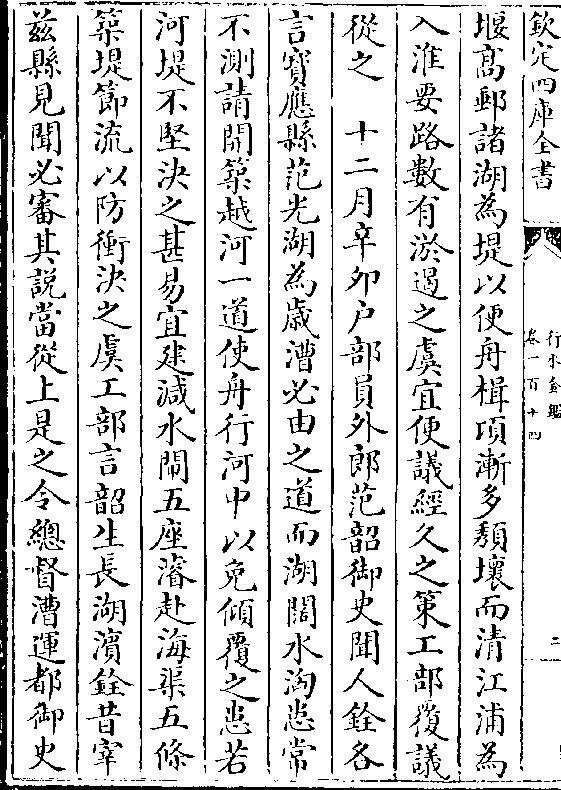 欽定四庫全書
行水金鑑
卷一百十四
二
堰高郵諸湖為堤以便舟楫項漸多頽壞而清江浦為
入淮要路數有淤遏之虞宜便議經久之策工部覆議
從之　十二月辛卯户部員外郎范韶御史聞人銓各
言寶應縣范光湖為嵗漕必由之道而湖闊水洶患常
不測請開築越河一道使舟行河中以免傾覆之患若
河堤不堅決之甚易宜建減水閘五座濬赴海渠五條
築堤節流以防衝決之虞工部言韶生長湖濱銓昔宰
兹縣見聞必審其說當從上是之令總督漕運都御史